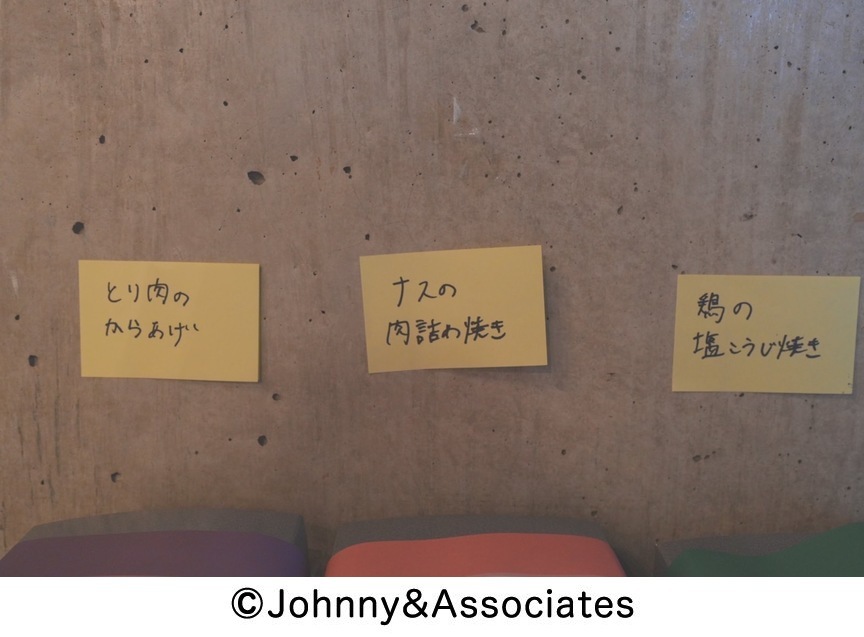 とり肉の
からあげ
ナスの
肉詰め焼き
鶏の
塩こうじ焼き
©Johnny&Associates